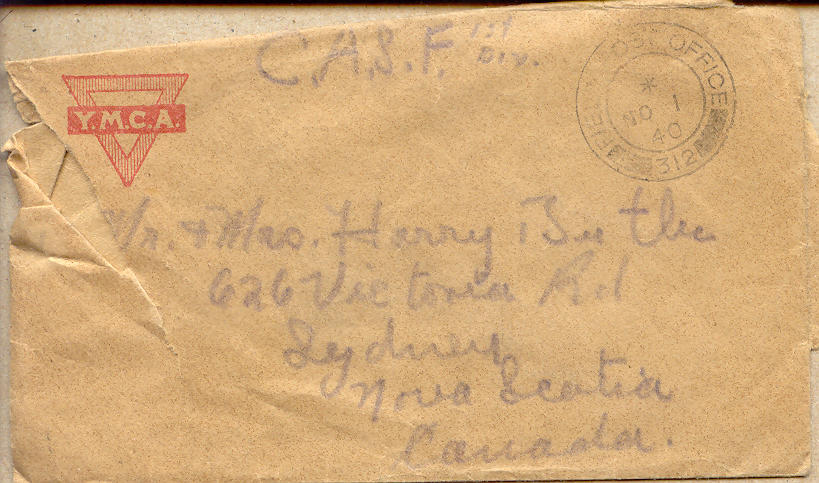 C.A.S.F. 1st Div.
Y.M.C.A.
FIELD POST OFFICE
*
NO 1
40
312
Mr. & Mrs. Harry Buthe
626 Victoria Rd
Sydney
Nova Scotia
Canada.